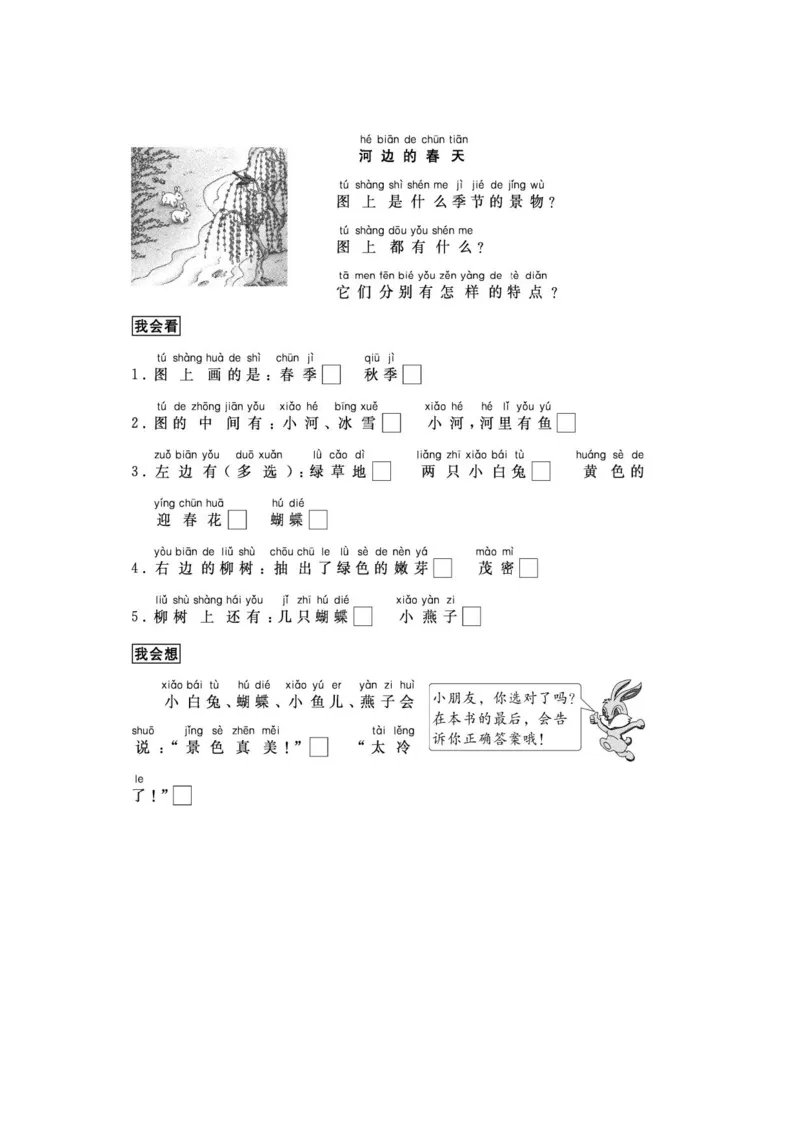 hé biān de chūn tiān
河边的春天
tú shàng shì shén me jì jié de jǐng wù
图上是什么季节的景物?
tú shàng dōu yǒu shén me
图上都有什么?
tā men fēn bié yǒu zěn yàng de tè diǎn
它们分别有怎样的特点?
我会看
tú shàng huà de shì chūn jì qiū jì
1.图上画的是:春季□ 秋季□
tú de zhōng jiān yǒu xiǎo hé bīng xuě xiǎo hé hé lǐ yǒu yú
2.图的中间有:小河、冰雪□ 小河,河里有鱼□
zuǒ biān yǒu duō xuǎn lǜ cǎo dì liǎng zhī xiǎo bái tù huáng sè de
3.左边有(多选):绿草地□ 两只小白兔□ 黄色的
yíng chūn huā hú dié
迎春花□ 蝴蝶□
yòu biān de liǔ shù chōu chū le lǜ sè de nèn yá mào mì
4.右边的柳树:抽出了绿色的嫩芽□ 茂密□
liǔ shù shàng hái yǒu jǐ zhī hú dié xiǎo yàn zi
5.柳树上还有:几只蝴蝶□ 小燕子□
我会想
xiǎo bái tù hú dié xiǎo yú er yàn zi huì
小白兔、蝴蝶、小鱼儿、燕子会
shuō jǐng sè zhēn měi tài lěng
说:“景色真美!”□ “太冷
le
了!”□
小朋友,你选对了吗?
在本书的最后,会告
诉你正确答案哦!